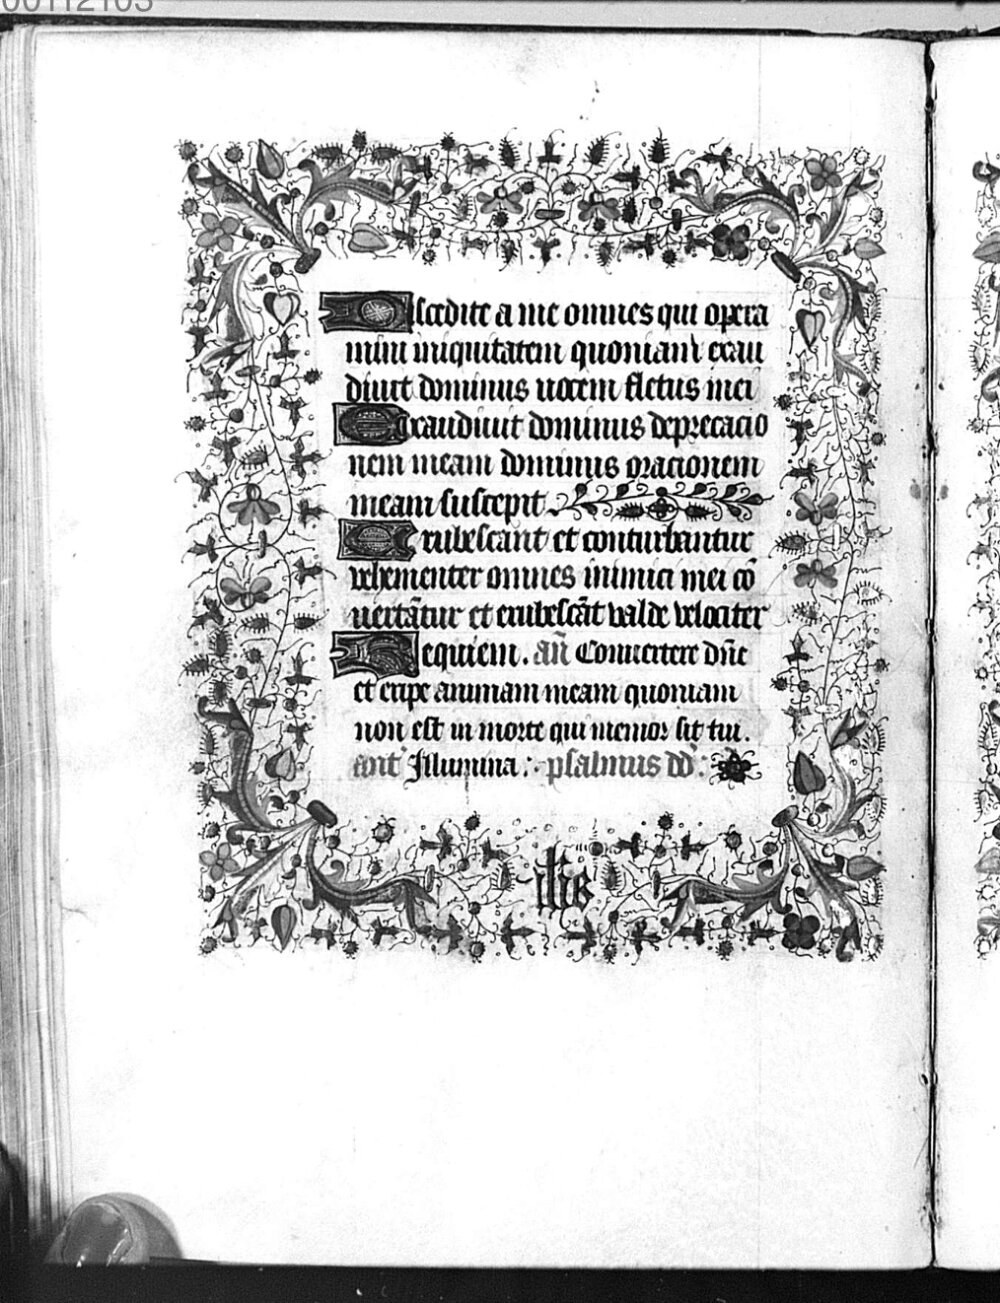 00112103
Discedite a me omnes qui opera
mini iniquitatem quoniam exau
diuit dominus uocem fletus mei
Exaudiuit dominus deprecacio
nem meam dominus orationem
meam suscepit
Erubescant et conturbantur
vehementer omnes inimici mei cō
uertātur et erubescāt valde velociter
Requiem. an̄ Conuertere dn̄e
et eripe animam meam quoniam
non est in morte qui memor sit tui.
ant Illumina : psalmus dd :
ihs